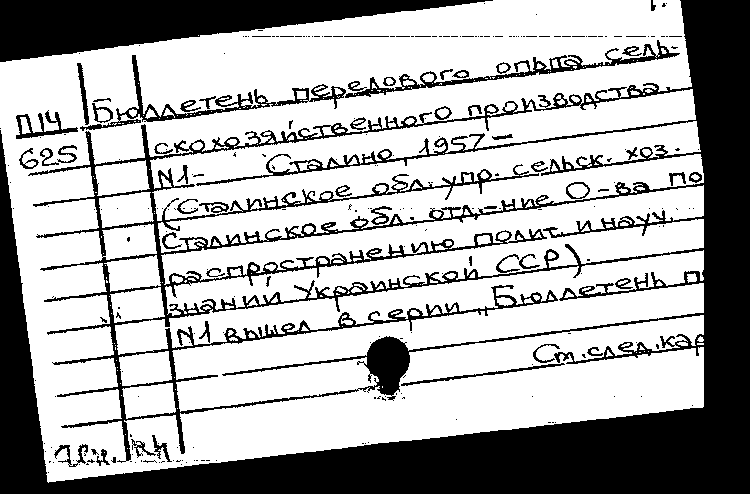 1.
П14 Бюллетень передового опыта сель-
625 скохозяйственного производства.
N1- Сталино, 1957-
(Сталинское обл. упр. сельск. хоз.
Сталинское обл. отд-ние О-ва по
распространению полит. и науч.
знаний Украинской ССР).
N1 вышел в серии „Бюллетень п
См. след. кар